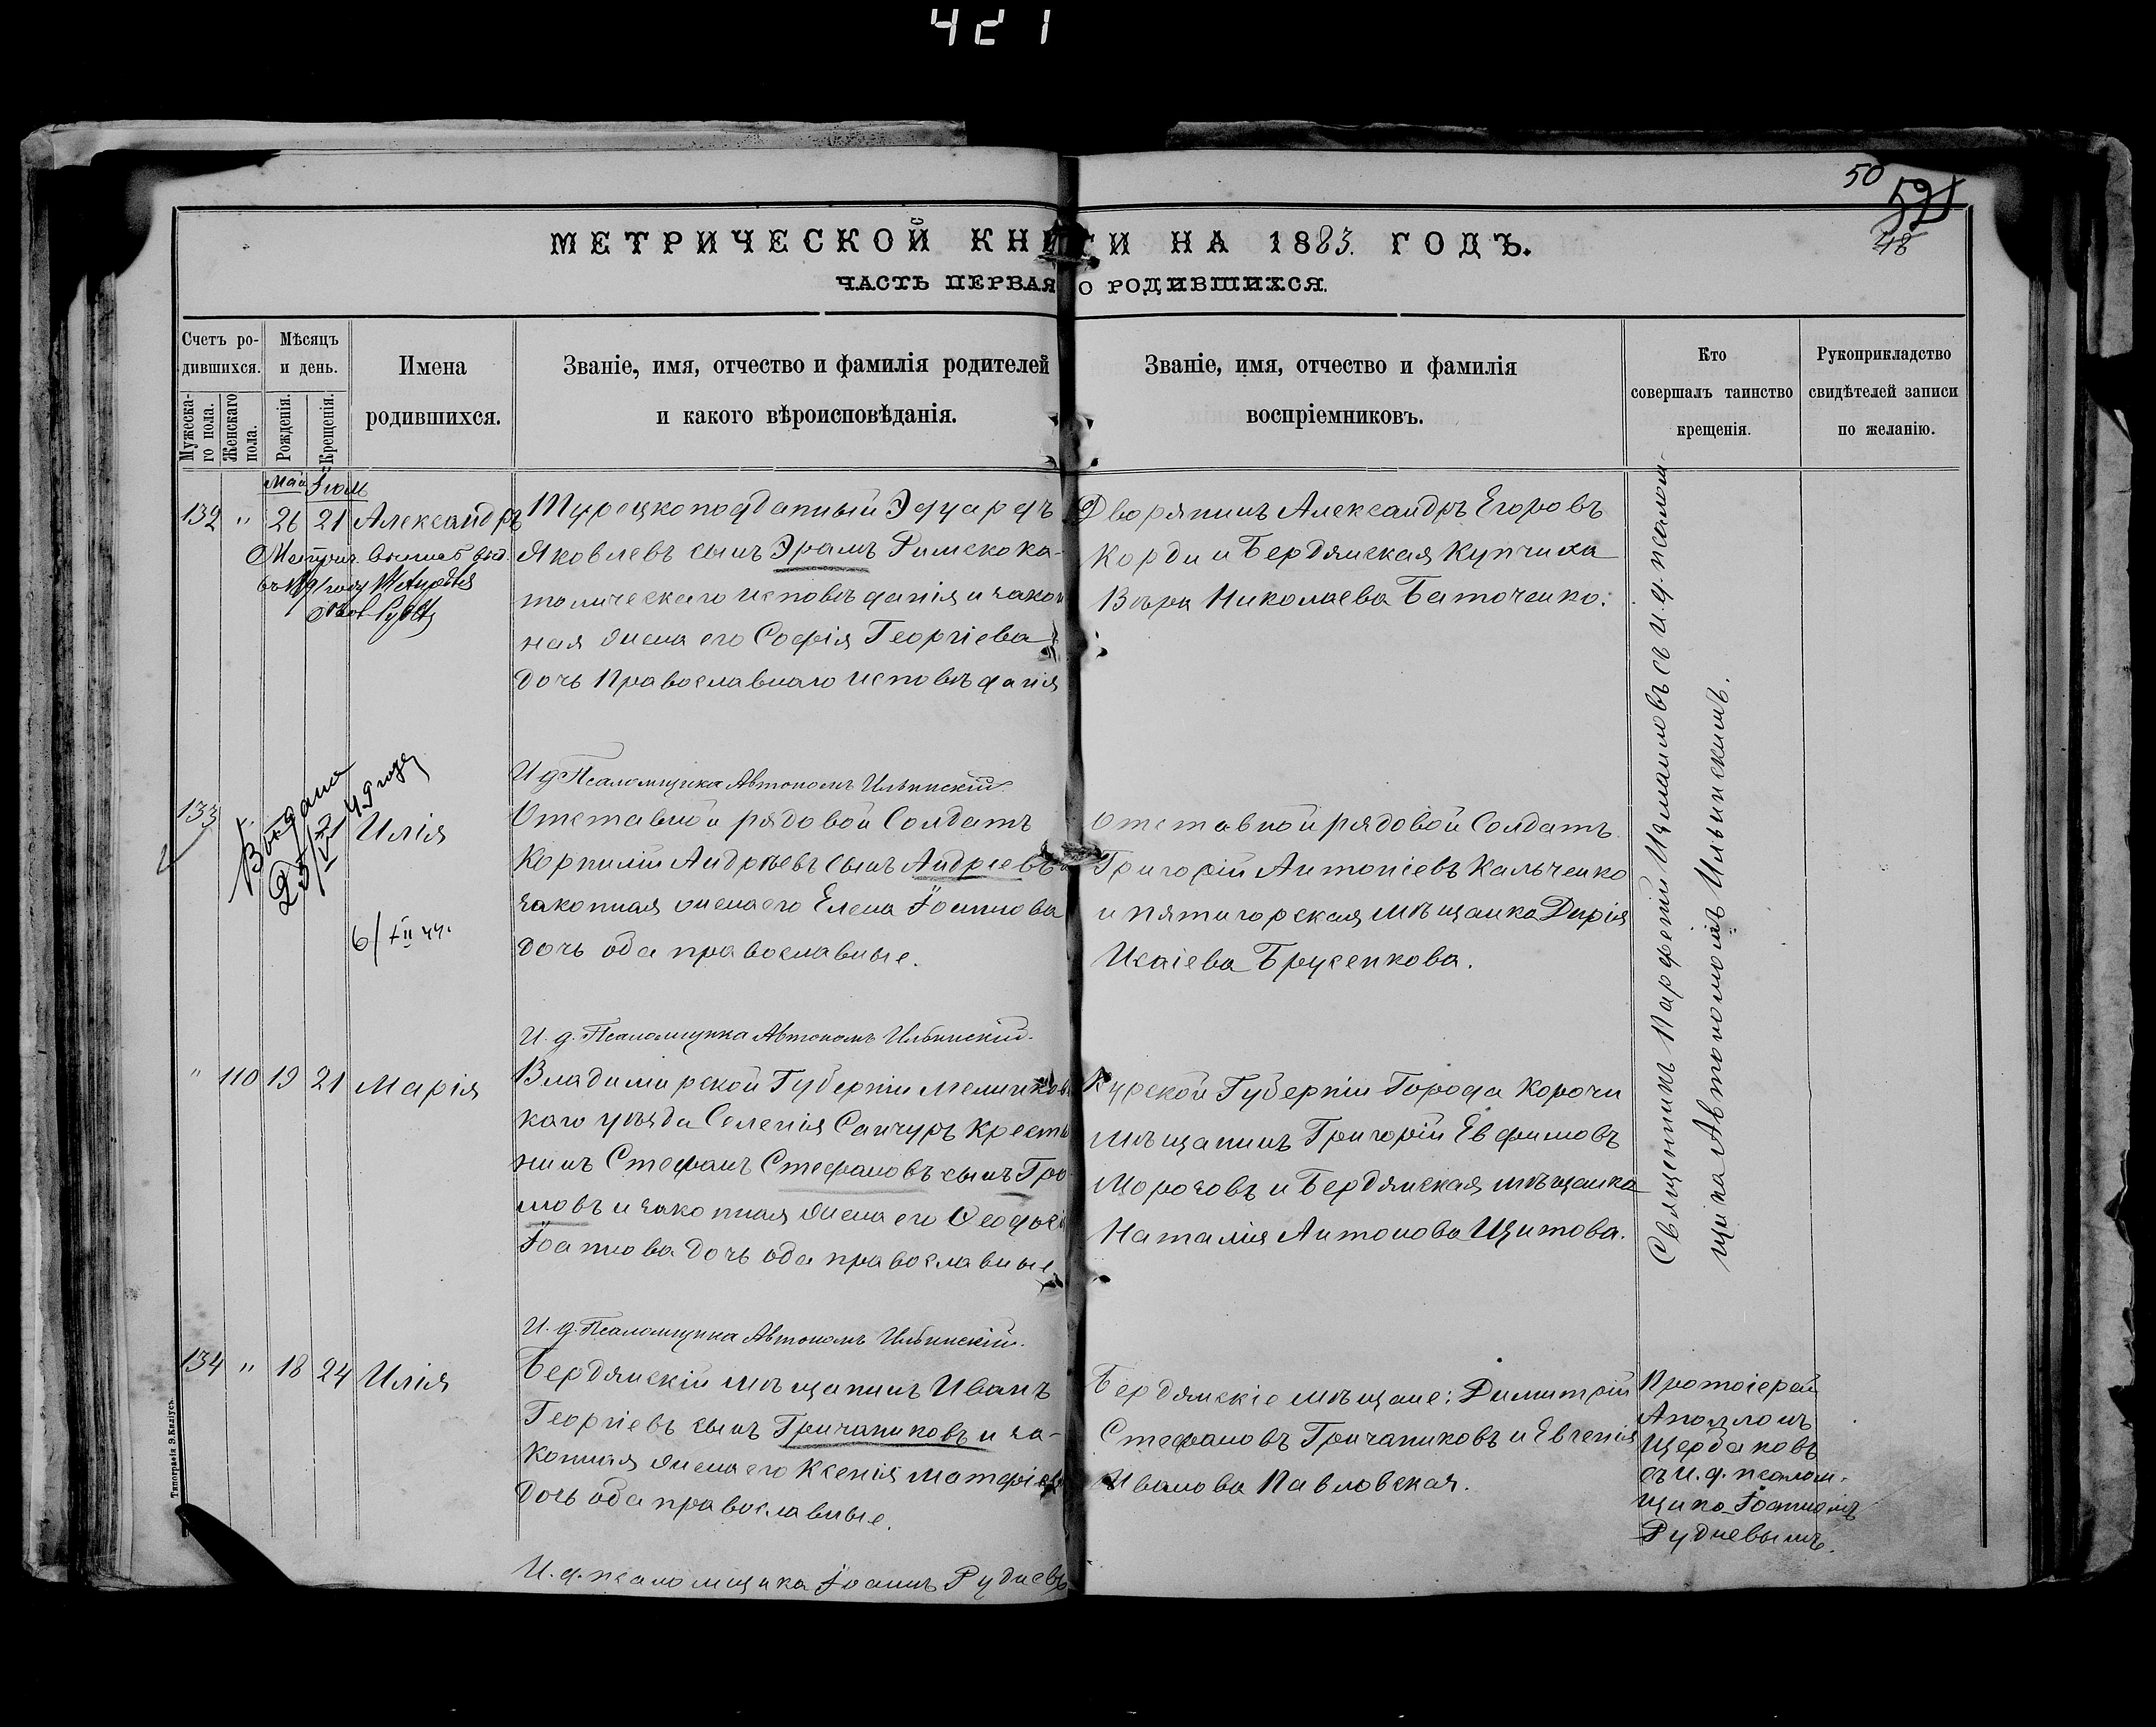 421
50
48
МЕТРИЧЕСКОЙ КНИГИ НА 1883. ГОДЪ.
ЧАСТЬ ПЕРВАЯ О РОДИВШИХСЯ.
Счетъ ро-
дившихся.
Мужеска-
го пола.
Женскаго
пола.
Мѣсяцъ
и день.
Рожденія.
Крещенія.
Имена
родившихся.
Званіе, имя, отчество и фамилія родителей
и какого вѣроисповѣданія.
Званіе, имя, отчество и фамилія
воспріемниковъ.
Кто
совершалъ таинство
крещенія.
Рукоприкладство
свидѣтелей записи
по желанію.
Май Іюль
132 " 26 21 Александръ
Турецкоподданный Эдуардъ
Яковлевъ сынъ Эрамъ Римскока-
толическаго исповѣданія и закон
ная жена его Софія Георгіева
дочь Православнаго исповѣданія
Дворянинъ Александръ Егоровъ
Корди и Бердянская Купчиха
Вѣра Николаева Баточенко.
И д Псаломщика Автономъ Ильинскій.
133 Илія
Выдана
25/IV 49 года
6/XII 44.
Отставной рядовой Солдатъ
Корнилій Андрѣевъ сынъ Андріевъ и
законная жена его Елена Іоаннова
дочь оба православные.
Отставной рядовой Солдатъ
Григорій Антоніевъ Кальченко
и пятигорская мѣщанка Дарія
Исаіева Брусенкова.
И. д. Псаломщика Автономъ Ильинскій.
" 110 19 21 Марія
Владимирской Губерніи Меленковс
каго уѣзда Селенія Санчуръ Кресть
нинъ Стефанъ Стефановъ сынъ Гро
мовъ и законная жена его Ѳеодосія
Іоаннова дочь оба православные
Курской Губерніи Города Корочи
мѣщанинъ Григорій Евфимовъ
Морозовъ и Бердянская мѣщанка
Наталія Антонова Щитова.
Священникъ Парфеній Цямановъ съ и. д. псалом-
щика Автономомъ Ильинскимъ.
И. д. Псаломщика Автономъ Ильинскій.
134 " 18 24 Илія
Бердянскій мѣщанинъ Иванъ
Георгіевъ сынъ Гричаниковъ и за-
конная жена его Ксенія Матфіева
дочь оба православные.
Бердянскіе мѣщане: Димитрій
Стефановъ Гричаниковъ и Евгенія
Иванова Павловская.
Протоіерей
Аполлонъ
Щербаковъ
съ и. д. псалом-
щика Іоанномъ
Рудневымъ.
И. д. псаломщика Іоаннъ Рудневъ
Типографія Э. Киліусъ.